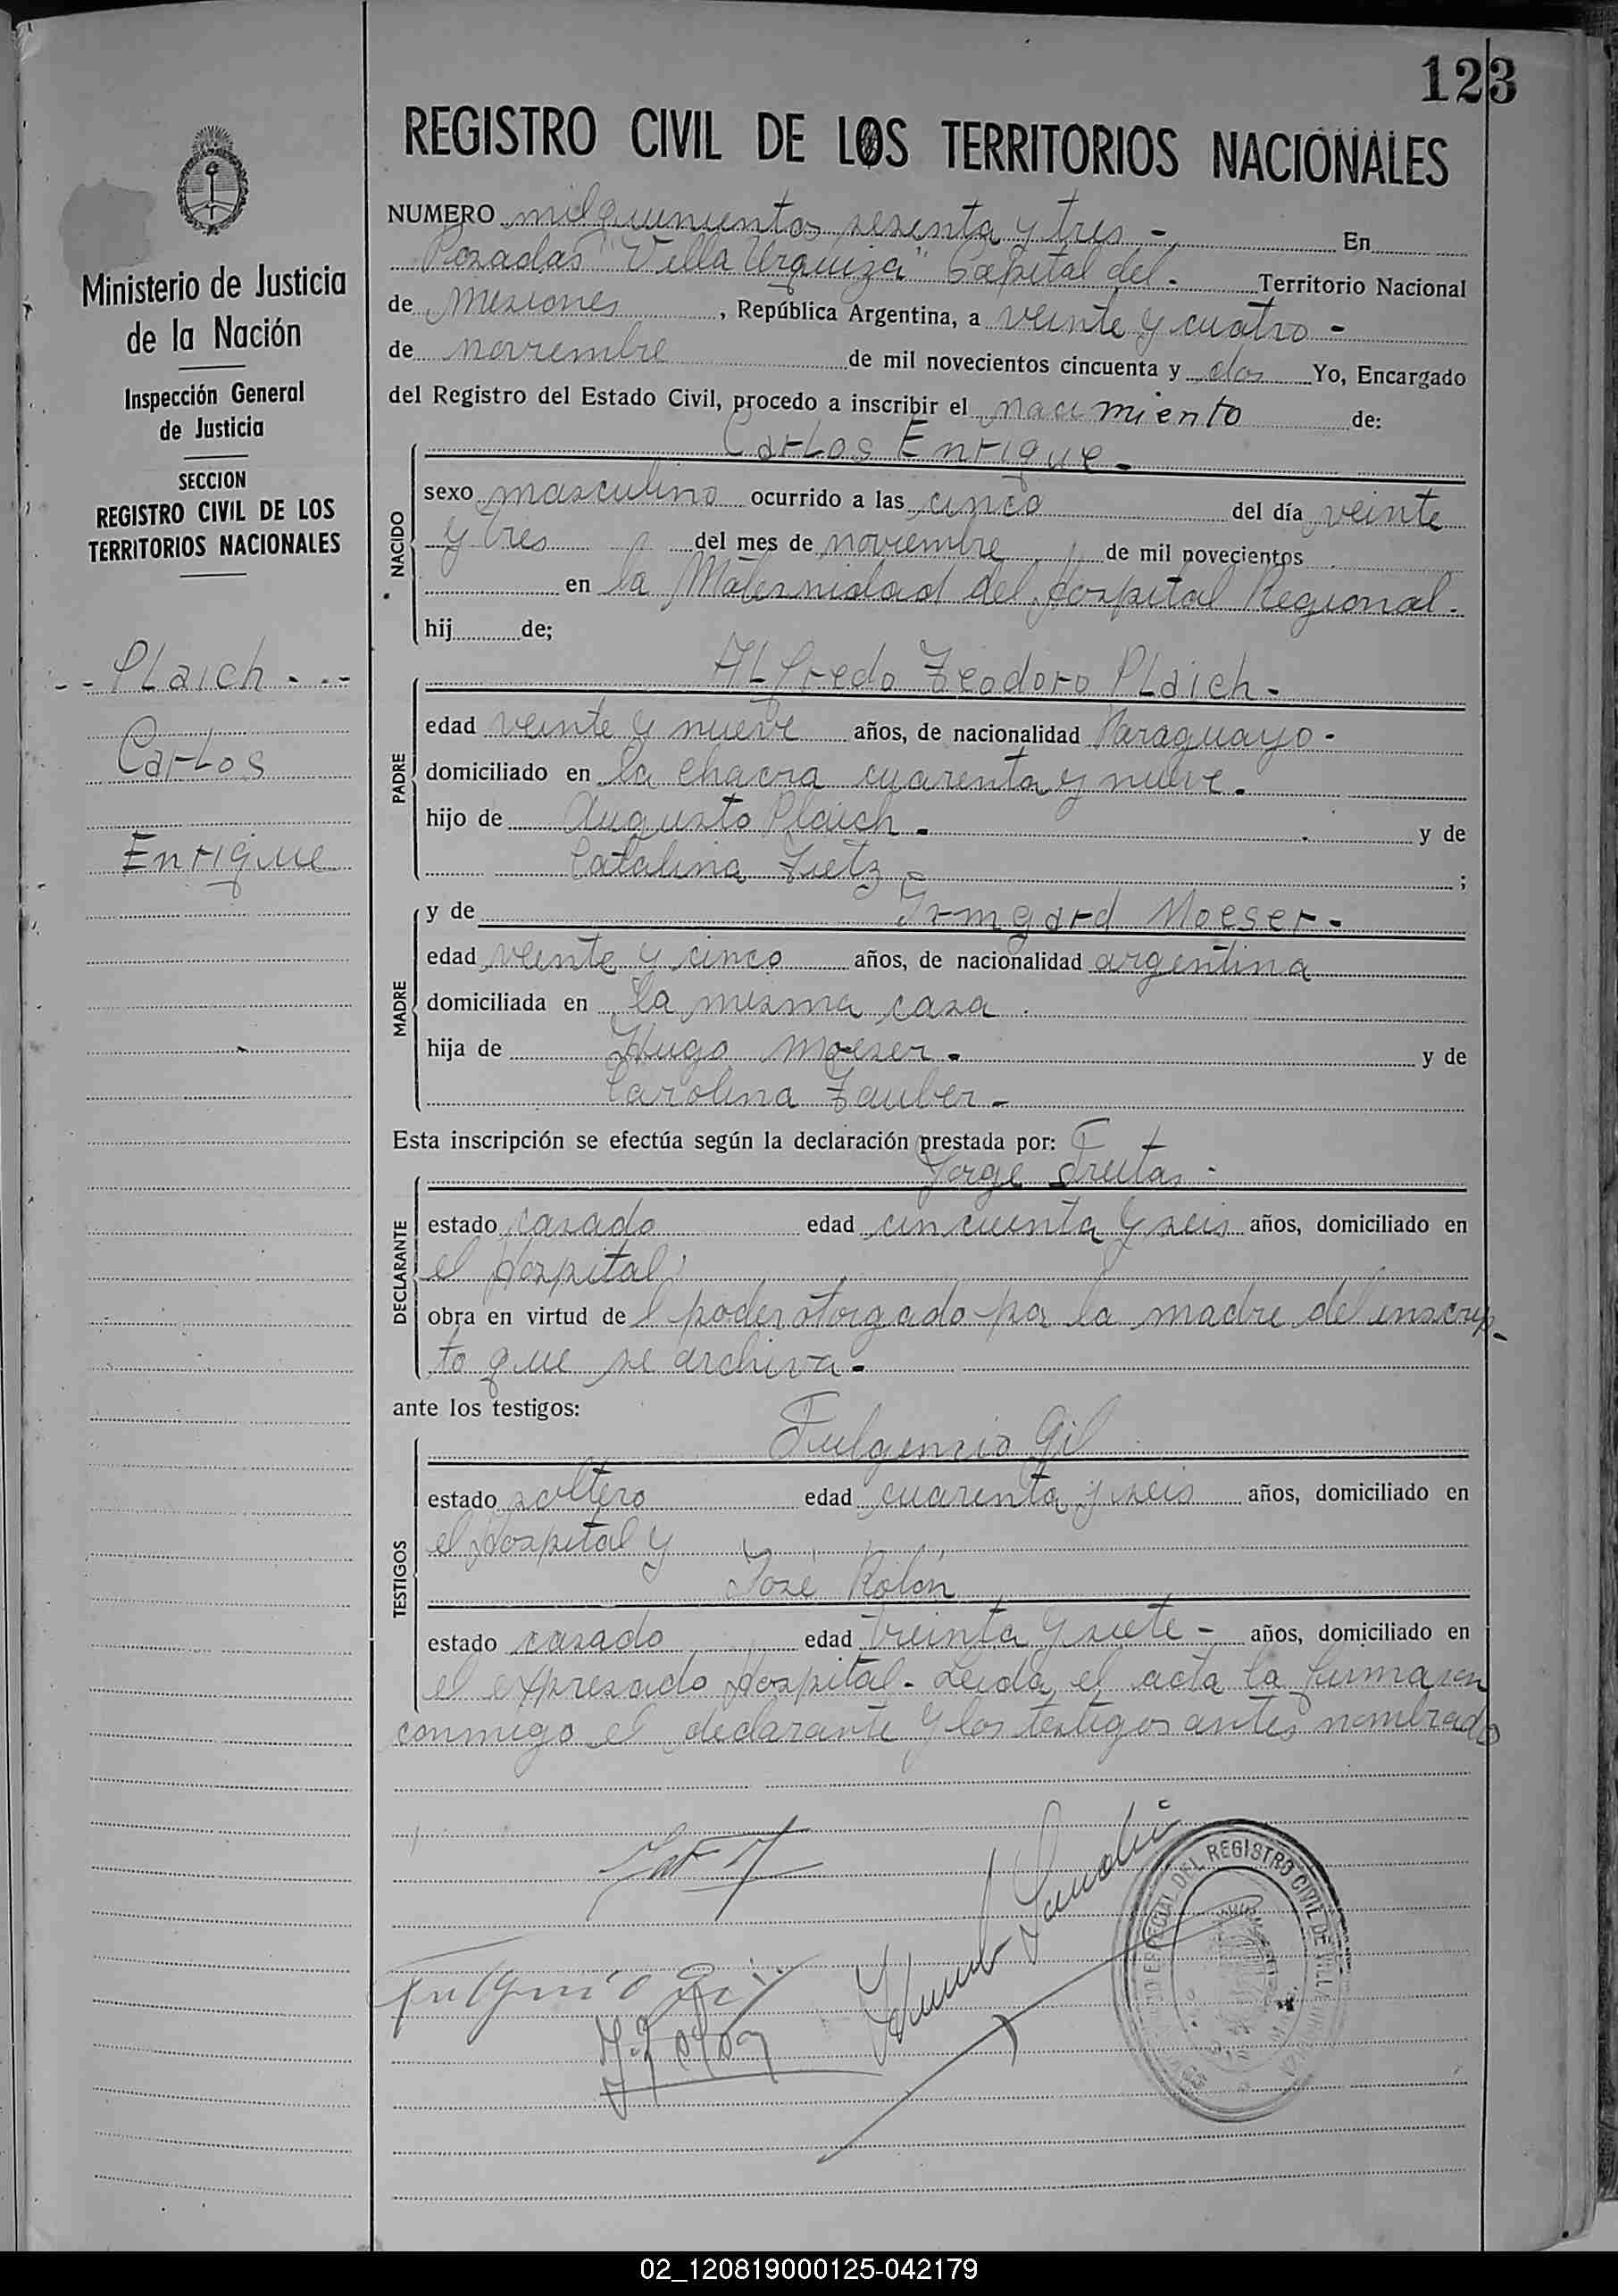 123
REGISTRO CIVIL DE LOS TERRITORIOS NACIONALES
Ministerio de Justicia
de la Nación
Inspección General
de Justicia
SECCION
REGISTRO CIVIL DE LOS
TERRITORIOS NACIONALES
- - Plaich - . -
Carlos
Enrique
NUMERO mil quinientos sesenta y tres - En
Posadas "Villa Urquiza" Capital del - Territorio Nacional
de Misiones, República Argentina, a veinte y cuatro -
de noviembre de mil novecientos cincuenta y dos Yo, Encargado
del Registro del Estado Civil, procedo a inscribir el nacimiento de:
Carlos Enrique -
NACIDO
sexo masculino ocurrido a las cinco del día veinte
y tres del mes de noviembre de mil novecientos
en la Maternidad del Hospital Regional.
hij de;
Alfredo Teodoro Plaich -
PADRE
edad veinte y nueve años, de nacionalidad Paraguayo -
domiciliado en la chacra cuarenta y nueve -
hijo de Augusto Plaich - y de
Catalina ;
y de Irmgard Moeser -
MADRE
edad veinte y cinco años, de nacionalidad argentina
domiciliada en la misma casa
hija de Hugo Moeser - y de
Carolina Tauber -
Esta inscripción se efectúa según la declaración prestada por:
Jorge Freitas -
DECLARANTE
estado casado edad cincuenta y seis años, domiciliado en
el Hospital,
obra en virtud de l poder otorgado por la madre del inscrip-
to que se archiva -
ante los testigos:
Fulgencio Gil
TESTIGOS
estado soltero edad cuarenta y seis años, domiciliado en
el Hospital y
José Rolón
estado casado edad treinta y siete - años, domiciliado en
el expresado Hospital - Leida el acta la firmaron
conmigo el declarante y los testigos antes nombrado
Fulgencio Gil
J. Rolon
DEL REGISTRO CIVIL DE VILLA URQUIZA
02_120819000125-042179